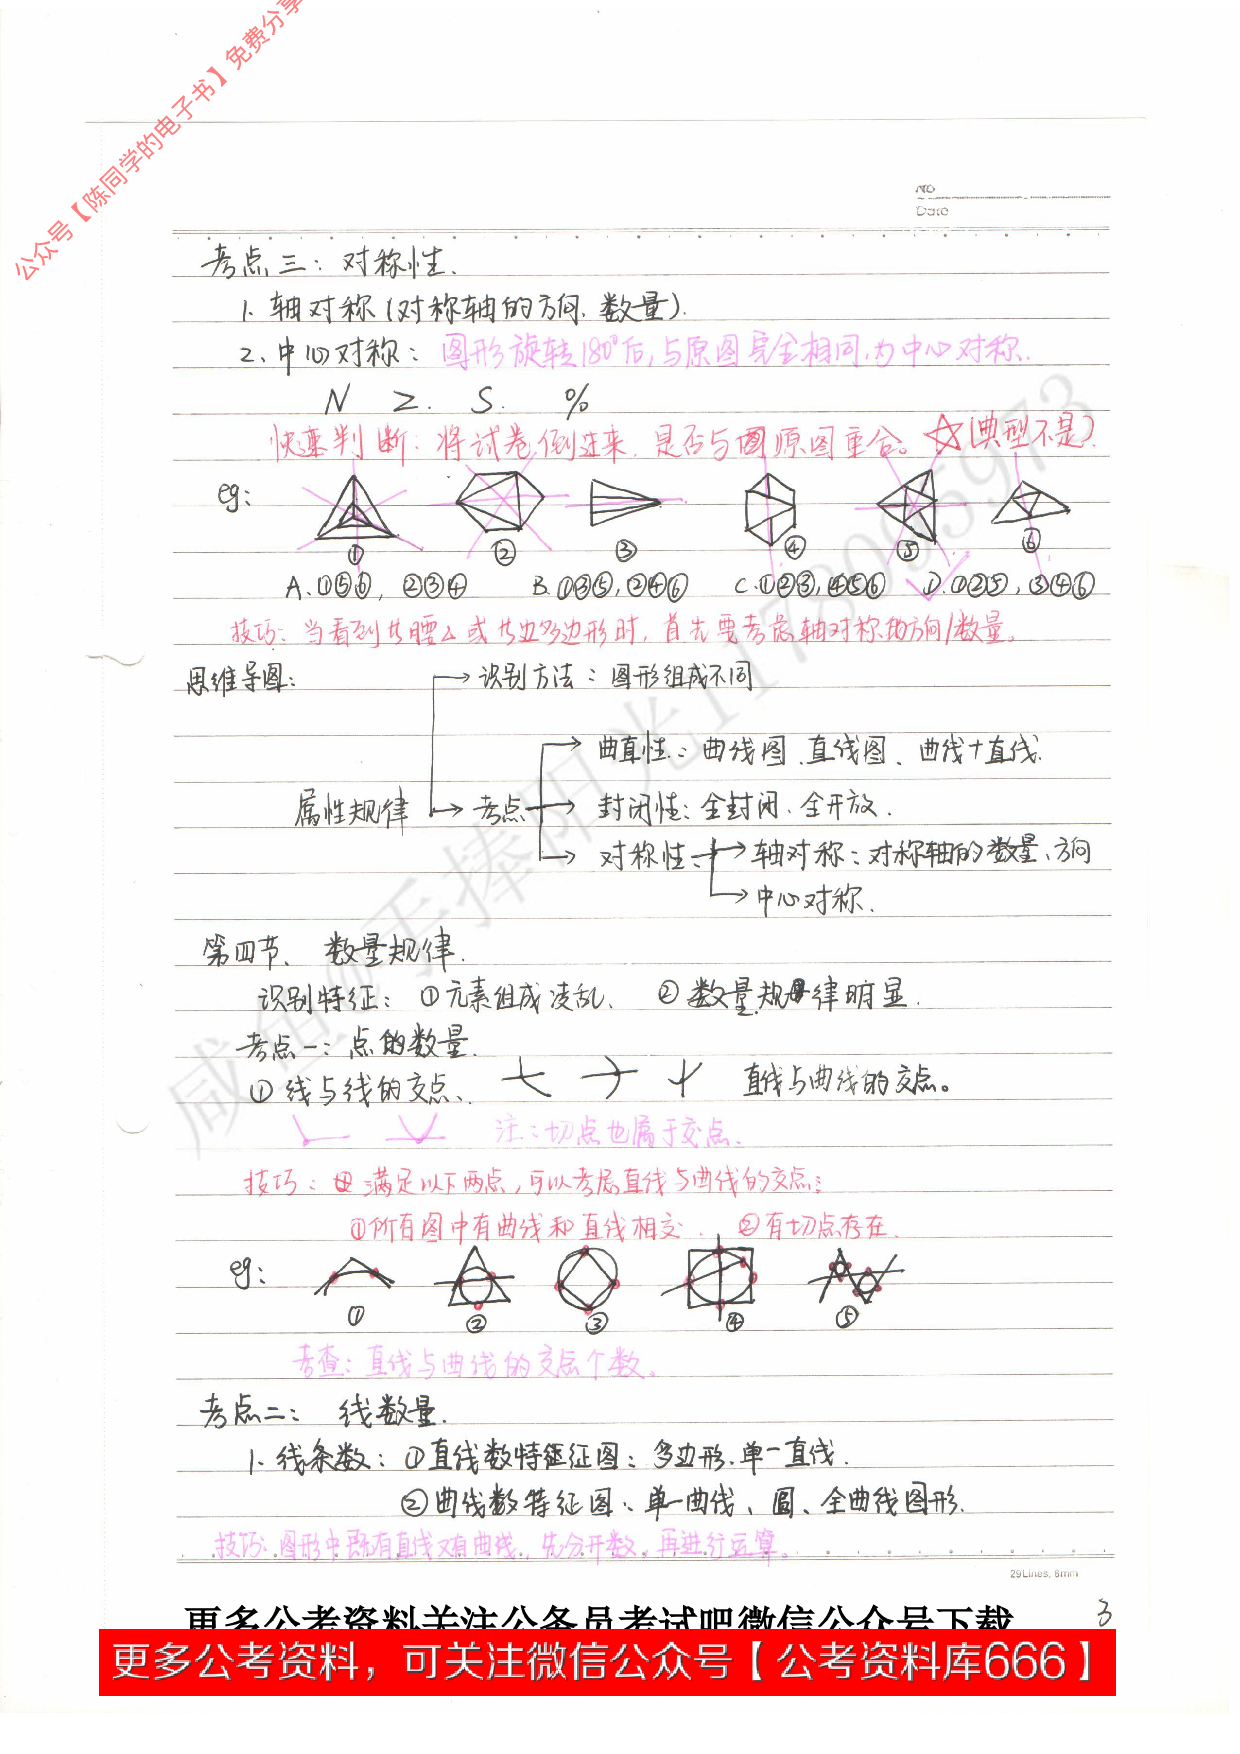 公众号【陈同学的电子书】免费分享
NO
Date
考点三：对称性.
1. 轴对称(对称轴的方向、数量).
2、中心对称：图形旋转180°后,与原图完全相同,为中心对称.
N Z. S. %
快速判断：将试卷倒过来,是否与原图重合。☆(典型不是).
eg:
① ② ③ ④ ⑤ ⑥
A.①⑤⑥, ②③④ B.①③⑤,②④⑥ C.①②③,④⑤⑥ D.①②⑤,③④⑥
技巧：当看到等腰△或等边多边形时,首先要考虑轴对称轴方向/数量。
思维导图：
→识别方法：图形组成不同
→曲直性：曲线图、直线图、曲线+直线.
属性规律 →考点→封闭性：全封闭、全开放.
→对称性：→轴对称：对称轴的数量、方向
→中心对称.
第四节、数量规律.
识别特征：①元素组成凌乱、②数量规律明显.
考点一：点的数量.
①线与线的交点、 直线与曲线的交点。
注：切点也属于交点.
技巧：满足以下两点,可以考虑直线与曲线的交点：
①所有图中有曲线和直线相交. ②有切点存在.
eg:
① ② ③ ④ ⑤
考查：直线与曲线的交点个数。
考点二：线数量.
1. 线条数：①直线数特征图：多边形.单一直线.
②曲线数特征图：单一曲线、圆、全曲线图形.
技巧：图形中既有直线又有曲线,先分开数,再进行运算。
29Lines, 8mm
3
更多公考资料关注公务员考试吧微信公众号下载
更多公考资料，可关注微信公众号【公考资料库666】
咸鱼@手捧阳光1178095973